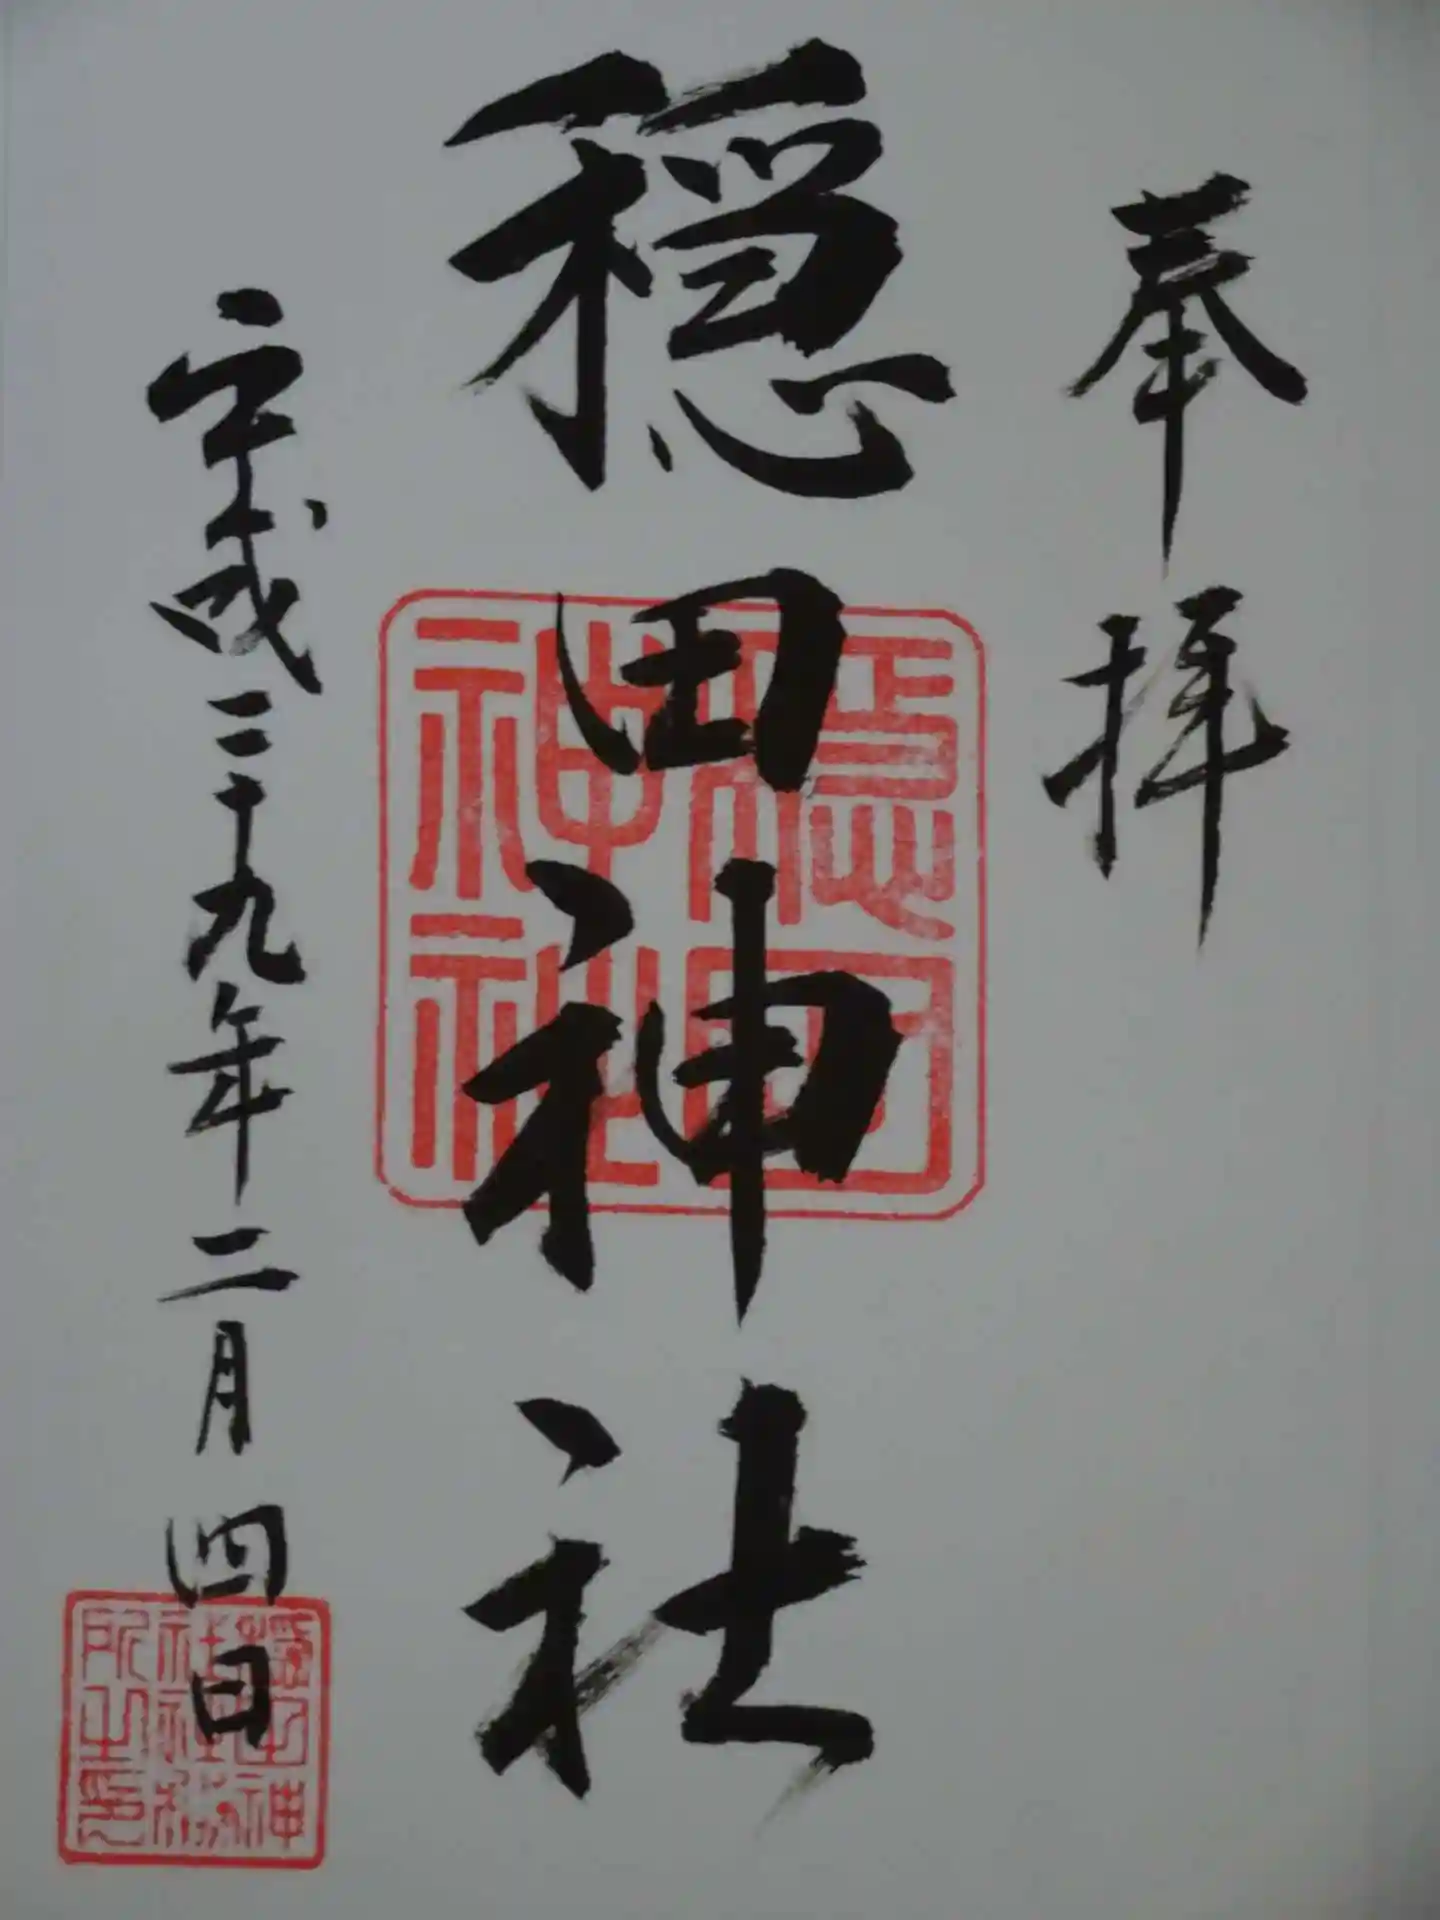 奉拝
穏田神社
穏田神社
平成二十九年二月四日
穏田神社社務所之印